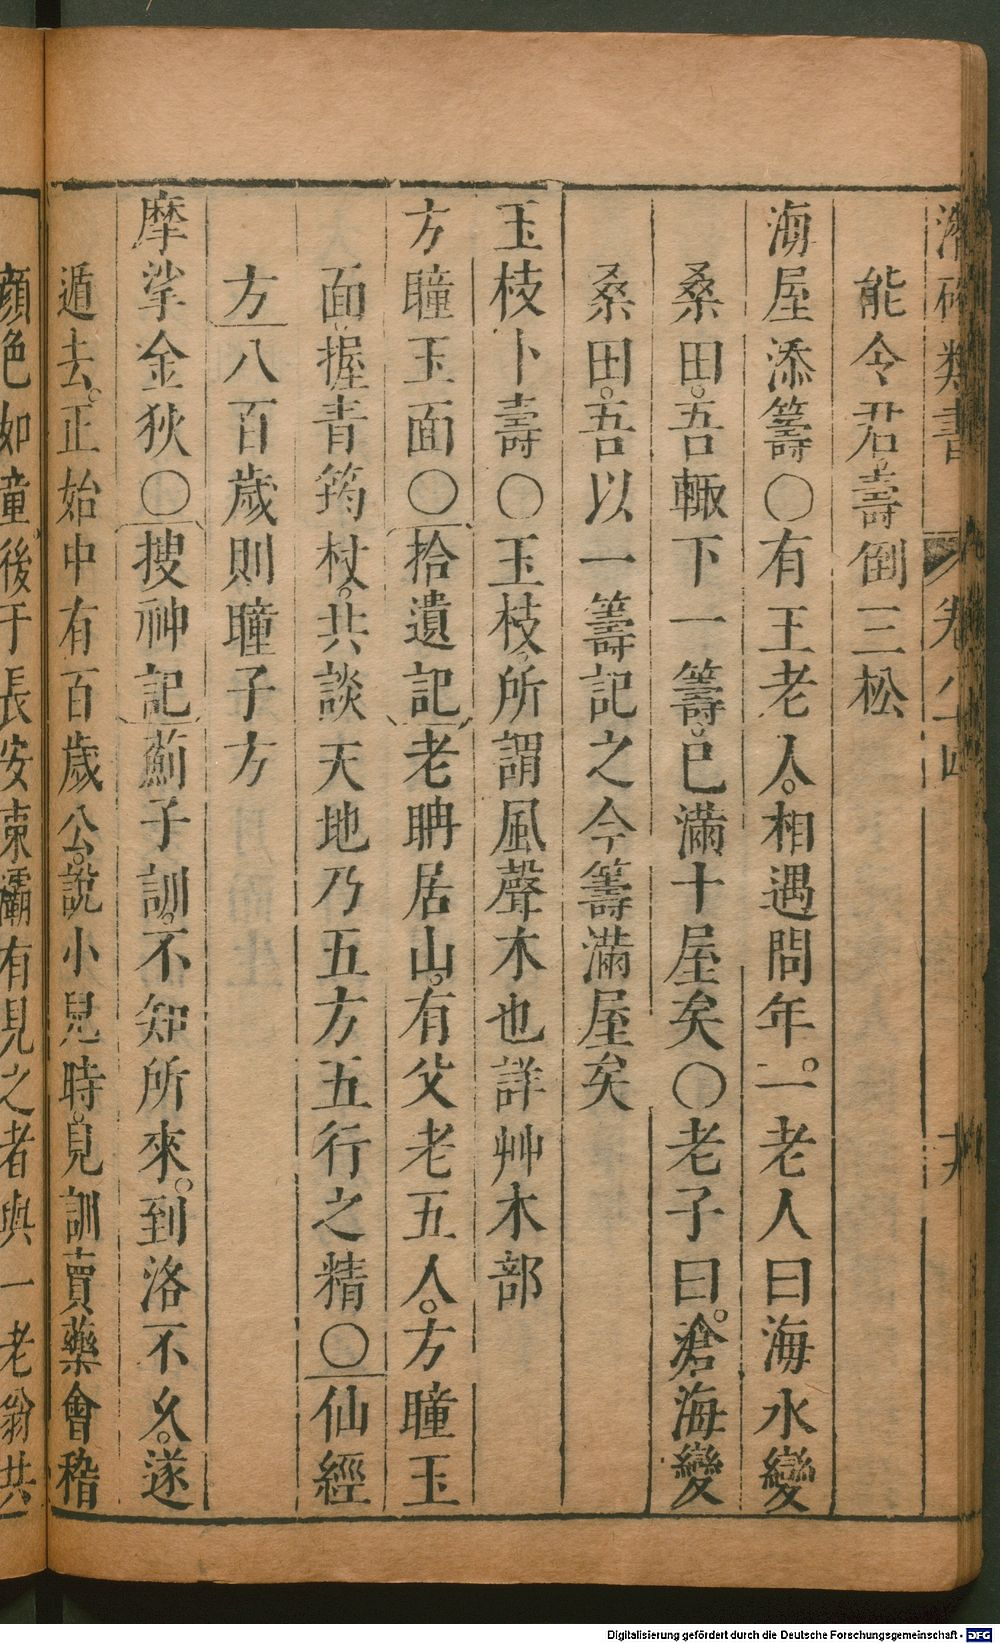 類書 卷八十四
能令君壽倒三松
海屋添籌〇有王老人。相遇問年。一老人曰海水變
桑田。吾輙下一籌。已滿十屋矣〇老子曰。滄海變
桑田。吾以一籌記之今籌滿屋矣
玉枝卜壽〇玉枝所謂風聲木也詳艸木部
方瞳玉面〇拾遺記老聃居山。有父老五人。方瞳玉
面握青筠杖。共談天地乃五方五行之精〇仙經
方八百歲則瞳子方
摩挲金狄〇搜神記薊子訓。不知所來。到洛不久。遂
遁去。正始中有百歲公。說小兒時。見訓賣藥會稽
顏色如童後于長安東灞有見之者與一老翁共
Digitalisierung gefördert durch die Deutsche Forschungsgemeinschaft - DFG